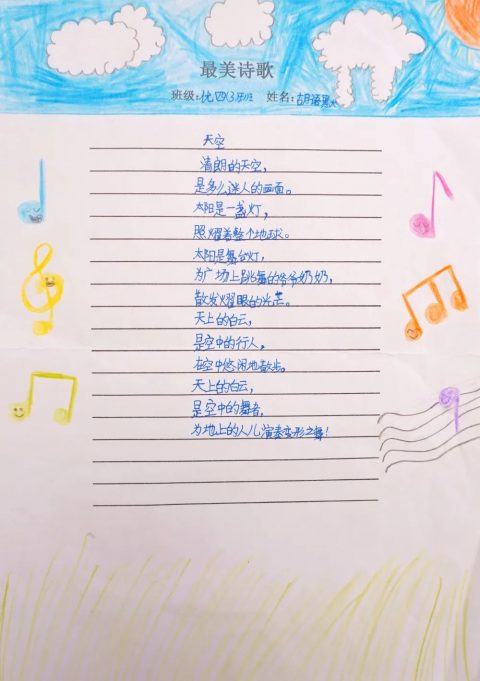 最美诗歌
班级:优四(3)班 姓名:胡语
天空
清朗的天空,
是多么迷人的画面。
太阳是一盏灯,
照耀着整个地球。
太阳是舞台灯,
为广场上跳舞的爷爷奶奶,
散发耀眼的光芒。
天上的白云,
是空中的行人,
在空中悠闲地散步。
天上的白云,
是空中的舞者,
为地上的人儿演奏变形之舞!